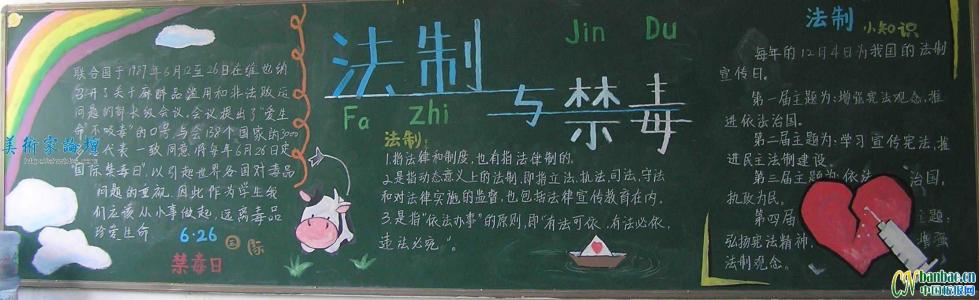 联合国于1987年6月12至26日在维也纳
召开了关于麻醉品滥用和非法贩运
问题的部长级会议。会议提出了“爱生
命,不吸毒”的口号。与会138个国家的3000
代表一致同意将每年6月26日定
“国际禁毒日”,以引起世界各国对毒品
问题的重视。因此作为学生我
们应该从小事做起,远离毒品
珍爱生命
6·26
国际
禁毒日
美術家論壇
法制
Fa Zhi
与
禁毒
Jin Du
法制:
1.指法律和制度,也有指法律制的。
2.是指动态意义上的法制,即指立法、执法、司法、守法
和对法律实施的监督,也包括法律宣传教育在内。
3.是指“依法办事”的原则,即“有法可依、有法必依、
违法必究”。
法制
小知识
每年的12月4日为我国的法制
宣传日。
第一届主题为:增强宪法观念,推
进依法治国。
第二届主题为:学习宣传宪法,推
进民主法制建设。
第三届主题为:依法 治国,
执政为民。
第四届 主题:
弘扬宪法精神, 增强
法制观念。
CN banbao.cn
中国板报网